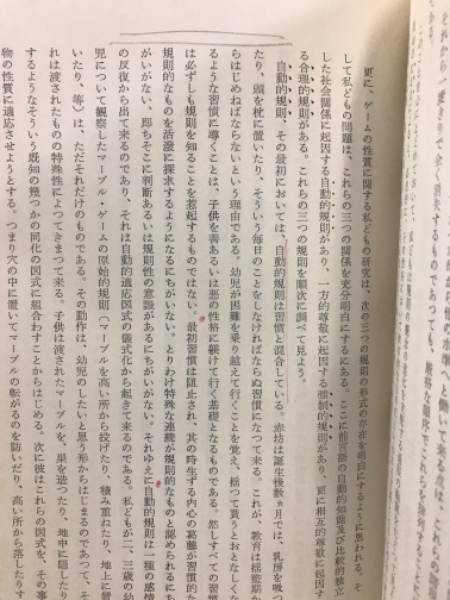 更に、ゲームの性質に関する私どもの研究は、次の三つの規則の形式の存在を明白にするように思われる。そ
して私どもの問題は、これらの三つの関係を充分明白にするにある。ここに前言語の自動的知能及び比較的独立
した社会関係に起因する自動的規則があり、一方的尊敬に起因する強制的規則があり、更に相互的尊敬に起因す
る合理的規則がある。これらの三つの規則を順次に調べて見よう。
自動的規則、その最初においては、自動的規則は習慣と混合している。赤坊は誕生後数ヵ月では、乳房を吸つ
たり、頭を枕に置いたり、そういう毎日のことをしなければならぬ習慣になつて来る。これが、教育は揺籃期か
らはじめねばならないという理由である。幼児が困難を乗り越えて行くことを覚え、揺つて貰うとおとなしくな
るような習慣に導くことは、子供を善あるいは悪の性格に躾けて行く基礎となるものである。然しすべての習慣
は必ずしも規則を知ることを惹起するものではない。最初習慣は阻止され、其の時生ずる内心の葛藤が習慣的な
規則的なものを活潑に探求するようになるにちがいない。とりわけ特殊な連続が規則的なものと認められるにち
がいがない、即ちそこに判断あるいは規則性の意識があるにちがいない。それゆえに自動的規則は一種の感情
の反復から出て来るのであり、それは自動的適応図式の儀式化から起きて来るのである。私どもが二、三歳の幼
児について観察したマーブル・ゲームの原始的規則(マーブルを高い所から投げたり、積み重ねたり、地上に置
いたり、等)は、ただそれだけのものである。その動作は、幼児のしたいと思う形からはじまるのであつて、そ
れは渡されたものの特殊性によつてきまつて来る。子供は渡されたマーブルを、巣を造つたり、地中に隠したり
するようなそういう既知の幾つかの同化の図式に組合わすことからはじめる。次に彼はこれらの図式を、その事
物の性質に適応させようとする。つまり穴の中に置いてマーブルの転がるのを防いだり、高い所から落したりす